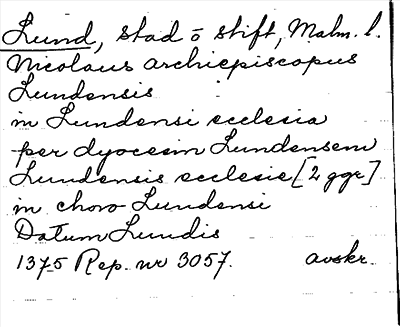 Lund, stad o stift, Malm. l.
Nicolaus archiepiscopus
Lundensis
in Lundensi ecclesia
per dyocesin Lundensem
Lundensis ecclesie [2 ggr]
in choro Lundensi
Datum Lundis
1375 Rep. nr 3057. avskr.